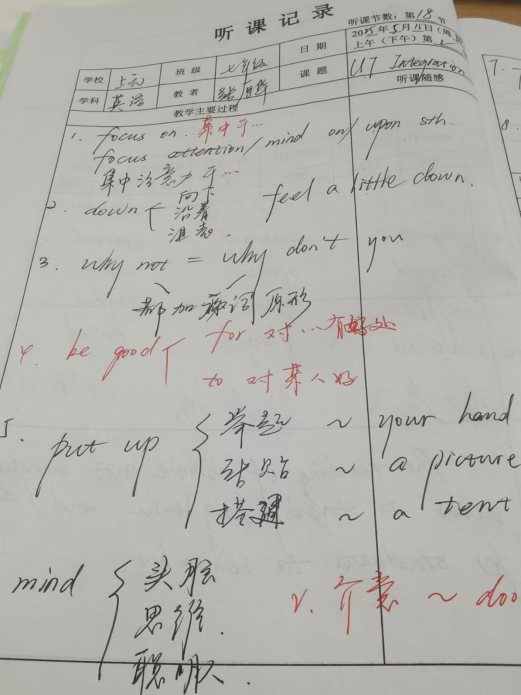 听课记录
听课节数：第18节
学校 上元 班级 七年级 日期 2015年5月11日(周
上午（下午）第
学科 英语 教者 课题 U7 Integration
教学主要过程 听课随感
1. focus on 集中于…
focus attention/mind on/upon sth.
集中注意力于…
2. down 向下 feel a little down.
沿着
沮丧
3. why not = why don't you
都加动词原形
4. be good for 对…有好处
to 对某人好
5. put up 举起 ~ your hand
张贴 ~ a picture
搭建 ~ a tent
mind 头脑
思维
聪明人
v. 介意 ~ doo
7.
8.